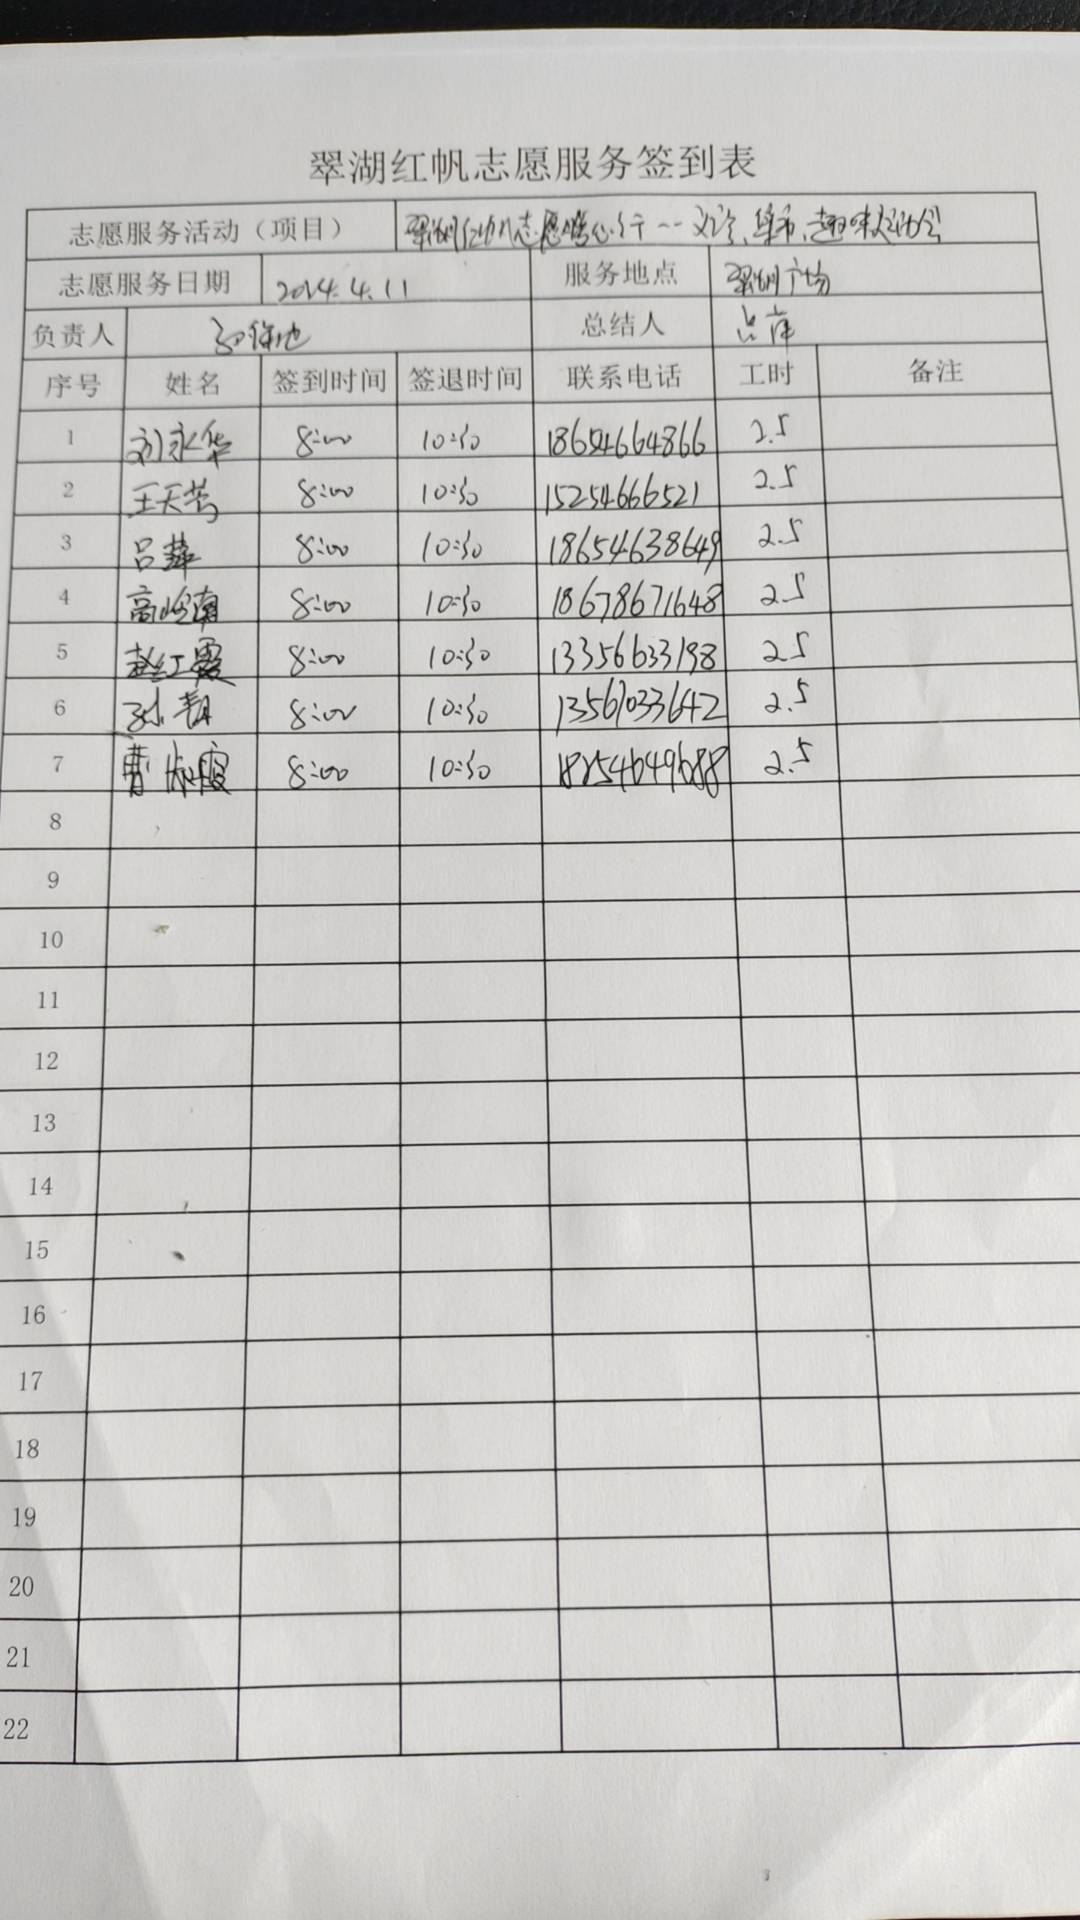 翠湖红帆志愿服务签到表
志愿服务活动（项目） 翠湖红帆志愿暖心行 --- 义诊、集市、趣味运动会
志愿服务日期 2024.4.11 服务地点 翠湖广场
负责人 总结人 吕萍
序号 姓名 签到时间 签退时间 联系电话 工时 备注
1 刘永华 8:00 10:30 18654664866 2.5
2 王天芳 8:00 10:30 15254666521 2.5
3 吕萍 8:00 10:30 18654638649 2.5
4 高岭南 8:00 10:30 18678671648 2.5
5 赵红霞 8:00 10:30 13356633198 2.5
6 孙青 8:00 10:30 13561033642 2.5
7 曹淑霞 8:00 10:30 18254649688 2.5
8
9
10
11
12
13
14
15
16
17
18
19
20
21
22